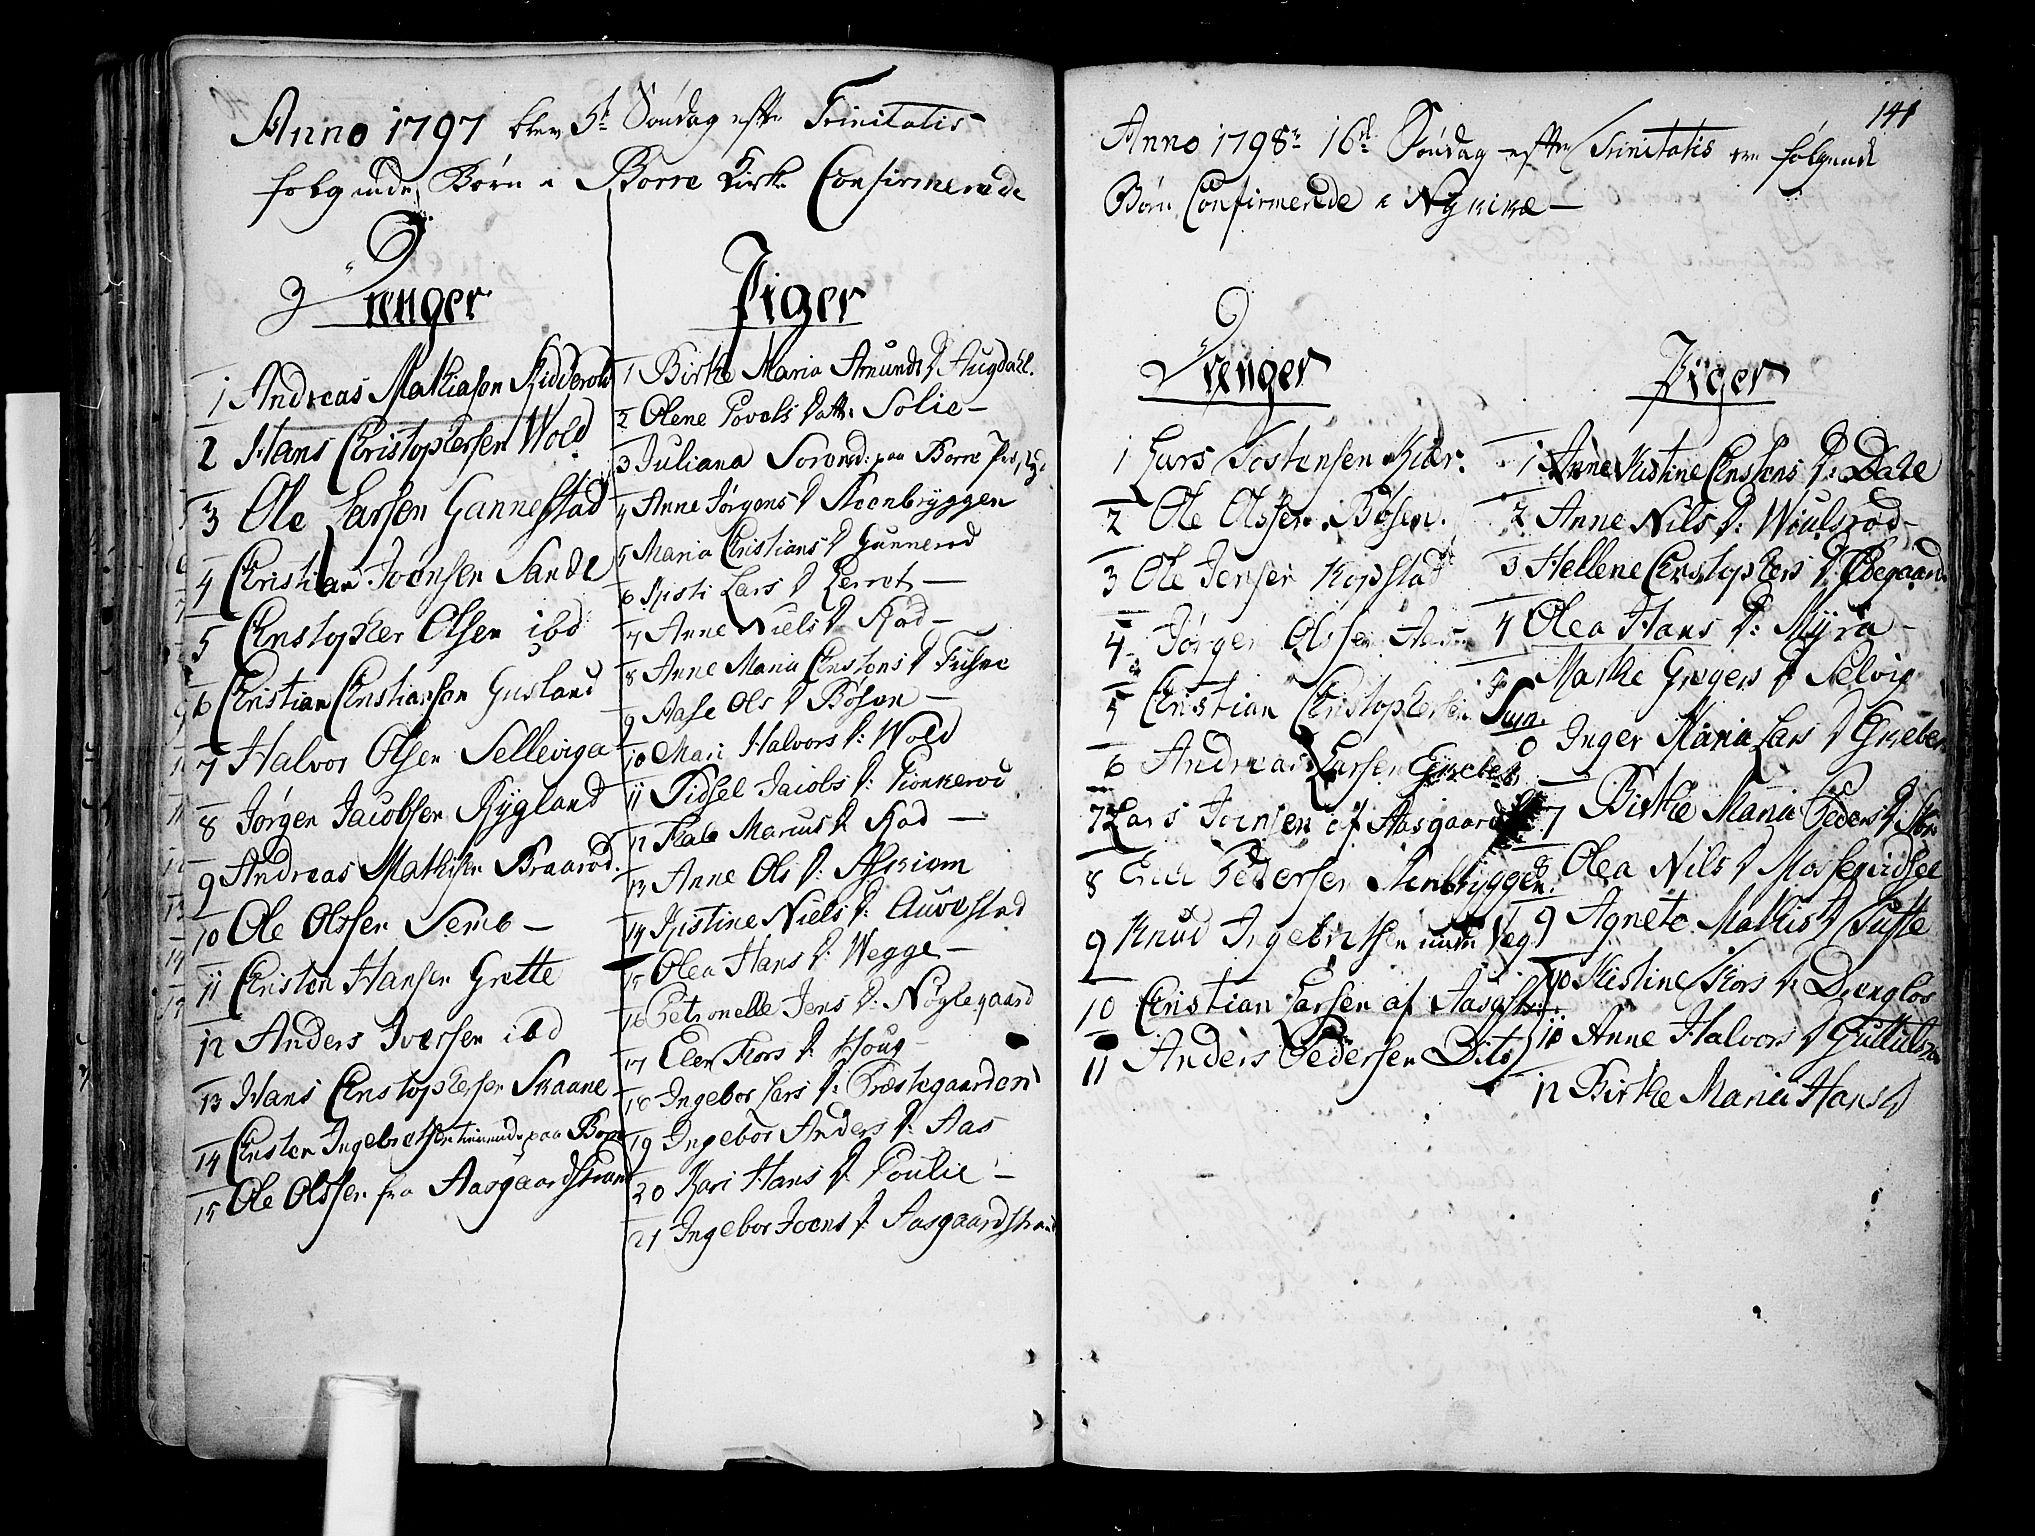 Anno 1797 blev 5te Søndag efter Trinitatis
følgende Børn i Borre Kirke Confirmerede
Drenger
1 Andreas Mathiasen
2 Hans Christophersen Wold
3 Ole Larsen Gannestad
4 Christian Iversen Sande
5 Christopher Olsen ibd
6 Christian Christiansen Gusland
7 Halvor Olsen Selleviga
8 Jørgen Jacobsen Rygland
9 Andreas Mathisen Braarød
10 Ole Olssen Semb
11 Christen Hansen Grette
12 Anders Iversen ibd
13 Hans Christophersen Skaane
14 Christen Ingebretsen tienende paa Borre
15 Ole Olssen fra Aasgaardstrand
Piger
1 Birthe Maria Amunds D Augdahl.
2 Olene Povels Datt: Solie
3 Juliana paa Borre
4 Anne Jørgens D Steenbryggen
5 Maria Christians D Gunnerød
6 Kisti Lars D
7 Anne Niels D. Rød
8 Anne Maria Christens D
9 Aase Ols D Bøsen
10 Mari Halvors D: Wold
11 Sidsel Jacobs D:
12 Marcus D. Rød
13 Anne Ols D:
14 Kistine Niels D:
15 Olea Hans D: Wegge
16 Petronelle Jens D: Nøglegaard
17 Elen Thors D: Houg
18 Ingebor Lars D: Præstegaarden
19 Ingebor Anders D: Aas
20 Kari Hans D: Foulie
21 Ingebor Ioens D: Aasgaardstrand
141
Anno 1798 16de Søndag efter Trinitatis ere følgende
Børn Confirmerede i Nykirke
Drenger
1 Lars Tostensen Kiær.
2 Ole Olssen Bøsen.
3 Ole Jensen Kopstad
4 Jørgen Olssen Aas
5 Christian Christophersen
6 Andreas Larsen Greber
7 Lars Ioensen af Aasgaard
8 Pedersen Stenbryggen.
9 Knud Ingebretsen
10 Christian Larsen af Aasg
11 Anders Pedersen
Piger
1 Anne Kistine Christens D: Dale
2 Anne Nils D: Wiulsrød
3 Hellene Christophers D:
4 Olea Hans D: Myra
5 Marthe Gregers D Selvig
6 Inger Maria Lars D Greber
7 Birthe Maria Peders D
8 Olea Nils D
9 Agnete Mathis D Tufte
10 Kistine Thors D:
10 Anne Halvors D
12 Birthe Maria Hans D